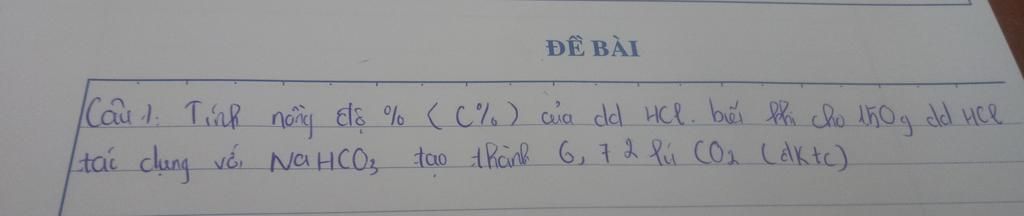 ĐỀ BÀI
Câu 1. Tính nồng độ % (C%) của dd HCl. biết khi cho 150g dd HCl
tác dụng với NaHCO3 tạo thành 6,72 lít CO2 (đktc)